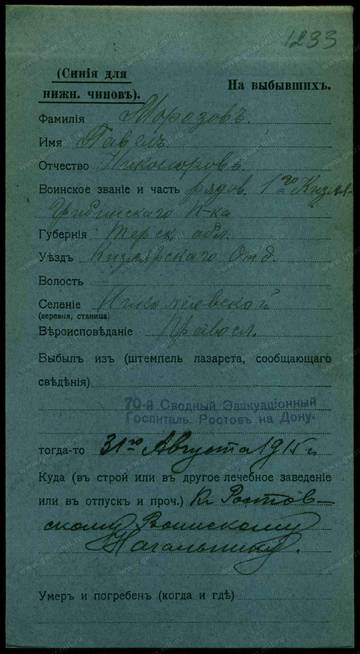 1233
(Синія для
нижн. чиновъ).
На выбывшихъ.
Фамилія Морозовъ.
Имя Павелъ
Отчество Никаноровъ
Воинское званіе и часть рядов. 1го Кизляр-
Гребинскаго П-ка
Губернія Терск. обл.
Уѣздъ Кизлярскаго Отд.
Волость
Селеніе Николаевской
(деревня, станица)
Вѣроисповѣданіе Правосл.
Выбылъ изъ (штемпель лазарета, сообщающаго
свѣдѣнія)
70-й Сводный Эвакуаціонный
Госпиталь, Ростовъ на Дону.
тогда-то 31го Августа 1915 г.
Куда (въ строй или въ другое лечебное заведеніе
или въ отпускъ и проч.) Къ Ростов-
скому Воинскому
Начальнику.
Умеръ и погребенъ (когда и гдѣ)